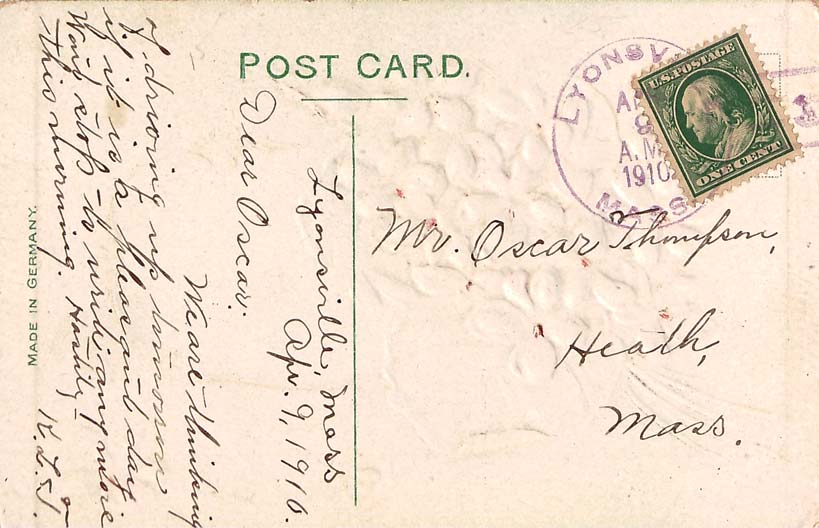 POST CARD.
LYONSV
A
9
A.M
1910
MASS
U.S. POSTAGE
ONE CENT
Lyonsville, Mass
Apr. 9, 1910.
Dear Oscar.
We are thinking
of driving up tomorrow
if it is a pleasant day
Wont stop to write any more
this morning. Hastily-
K.L.T.
Mr. Oscar Thompson,
Heath,
Mass.
MADE IN GERMANY.